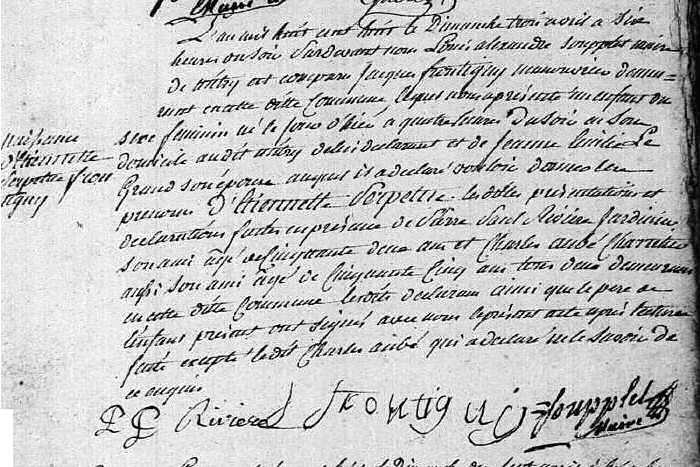 Maire
L'an mil huit cent trois le Dimanche trois avril a six
heures du soir Pardevant nous Louis alexandre Soupplet maire
de mitry est comparu Jacques frontiguy manouvrier demeu-
rant en cette ditte Commune lequel nous a présenté un enfant du
sexe feminin né le jour d'hier a quatre heures du soir en son
domicile audit mitry de lui declarant et de Jeanne Emilie Le
Grand son épouse auquel il a declaré vouloir donner les
prenoms D'Etiennette Serpettre lesdittes présentations et
declarations faites en presence de Pierre Paul Riviere Jardinier
son ami âgé de Cinquante deux ans et Charles aubé Charretier
aussi son ami âgé de Cinquante Cinq ans tous deux demeurans
en cette ditte Commune lesdits declarans ainsi que le pere de
L'enfant présent ont signés avec nous le présent acte après lecture
faite excepté ledit Charles aubé qui a declaré ne le savoir de
ce enquis
Naissance
d'Etiennette
Serpettre fron
tiguy
P P Riviere frontiguy Soupplet
Maire